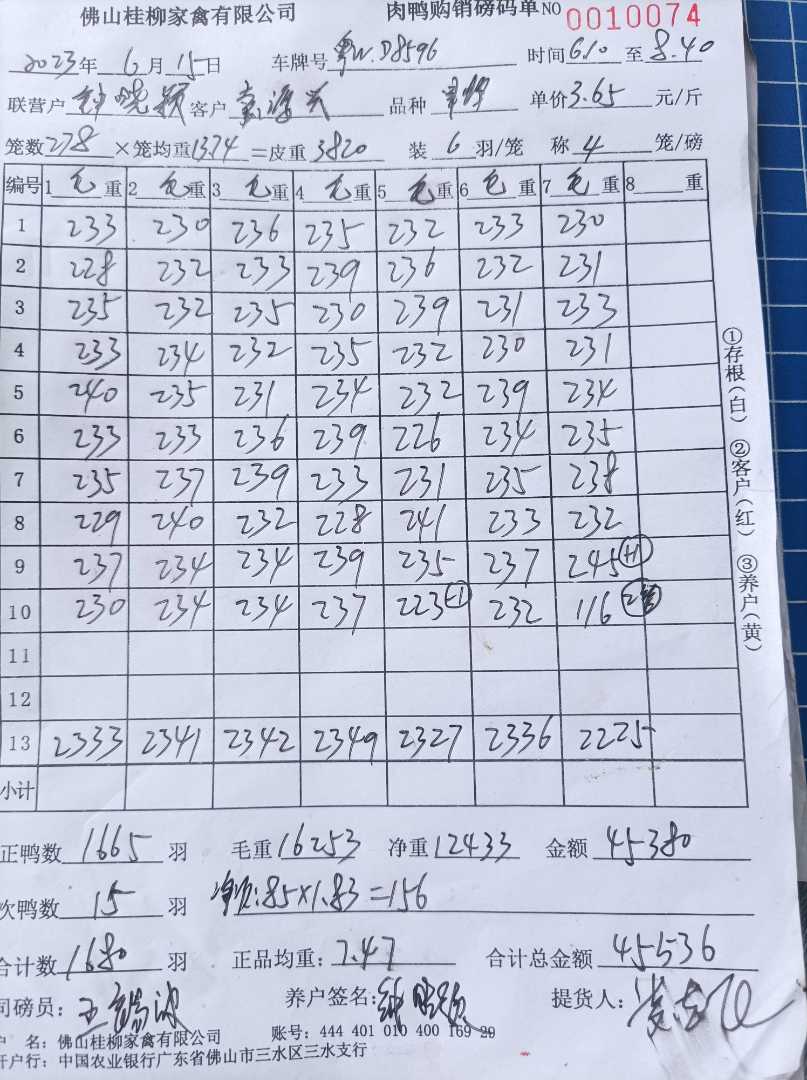 佛山桂柳家禽有限公司 肉鸭购销磅码单 NO 0010074
2023年 6月 15日 车牌号 粤W.D8596 时间 6.10 至 8.40
联营户 钟晓颖 客户 品种 单价 3.65 元/斤
笼数 278 ×笼均重 13.74 =皮重 3820 装 6 羽/笼 称 4 笼/磅
编号 1 毛 重 2 毛 重 3 毛 重 4 毛 重 5 毛 重 6 毛 重 7 毛 重 8 重
1 233 230 236 235 232 233 230
2 228 232 233 239 236 232 231
3 235 232 235 230 239 231 233
4 233 234 232 235 232 230 231
5 240 235 231 234 232 239 234
6 233 233 236 239 226 234 235
7 235 237 239 233 231 235 238
8 229 240 232 228 241 233 232
9 237 234 234 239 235 237 245 (+1)
10 230 234 234 237 223 (-1) 232 116
11
12
13 2333 2341 2342 2349 2327 2336 2225
小计
正鸭数 1665 羽 毛重 16253 净重 12433 金额 45380
次鸭数 15 羽 净次:85×1.83=156
合计数 1680 羽 正品均重: 7.47 合计总金额 45536
司磅员: 养户签名: 钟晓颖 提货人:
户 名: 佛山桂柳家禽有限公司 账号: 444 401 010 400 169 29
开户行: 中国农业银行广东省佛山市三水区三水支行
①存根(白) ②客户(红) ③养户(黄)